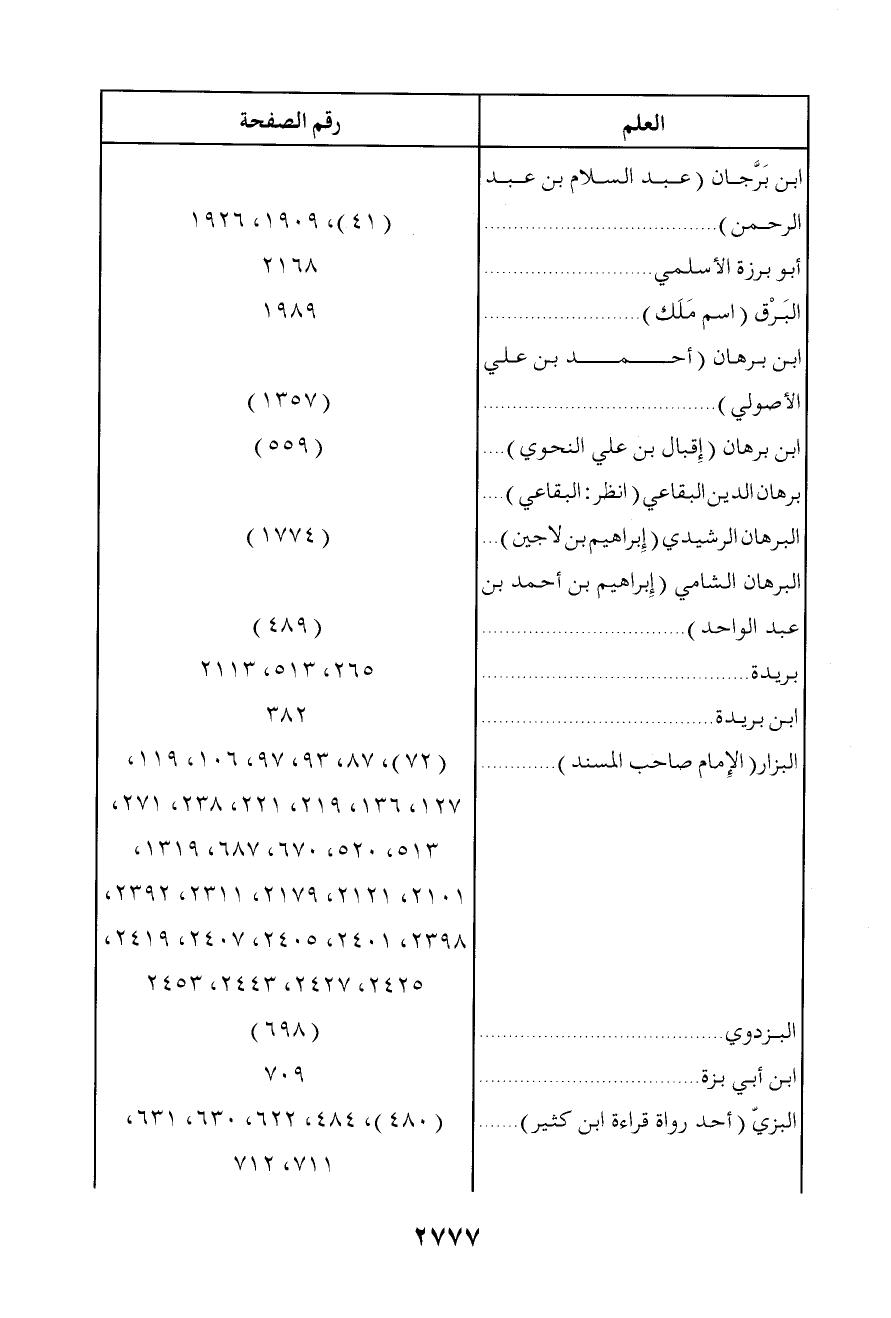 العلم	رقم الصفحة
ابن بَرَّجـان ( عـبـد السـلام بن عـبـد
الرحـمن )........................................	( ٤١ )، ١٩٠٩، ١٩٢٦
أبو برزة الأسلمي.............................	٢١٦٨
البَرْق ( اسم مَلَك )...........................	١٩٨٩
ابن برهان ( أحـمـد بن علي
الأصولي )........................................	( ١٣٥٧ )
ابن برهان ( إقبال بن علي النحوي )....	( ٥٥٩ )
برهان الدين البقاعي ( انظر : البقاعي )....
البرهان الرشيدي ( إبراهيم بن لاجين )...	( ١٧٧٤ )
البرهان الشامي ( إبراهيم بن أحمد بن
عبد الواحد )...................................	( ٤٨٩ )
بريدة..............................................	٢٦٥، ٥١٣، ٢١١٣
ابن بريدة........................................	٣٨٢
البزار( الإمام صاحب المسند )............	( ٧٢ )، ٨٧، ٩٣، ٩٧، ١٠٦، ١١٩،
١٢٧، ١٣٦، ٢١٩، ٢٢١، ٢٣٨، ٢٧١،
٥١٣، ٥٢٠، ٦٧٠، ٦٨٧، ١٣١٩،
٢١٠١، ٢١٢١، ٢١٧٩، ٢٣١١، ٢٣٩٢،
٢٣٩٨، ٢٤٠١، ٢٤٠٥، ٢٤٠٧، ٢٤١٩،
٢٤٢٥، ٢٤٢٧، ٢٤٤٣، ٢٤٥٣
البـزدوي..........................................	( ٦٩٨ )
ابن أبي بزة......................................	٧٠٩
البزيّ ( أحد رواة قراءة ابن كثير ).......	( ٤٨٠ )، ٤٨٤، ٦٢٢، ٦٣٠، ٦٣١،
٧١١، ٧١٢
٢٧٧٧